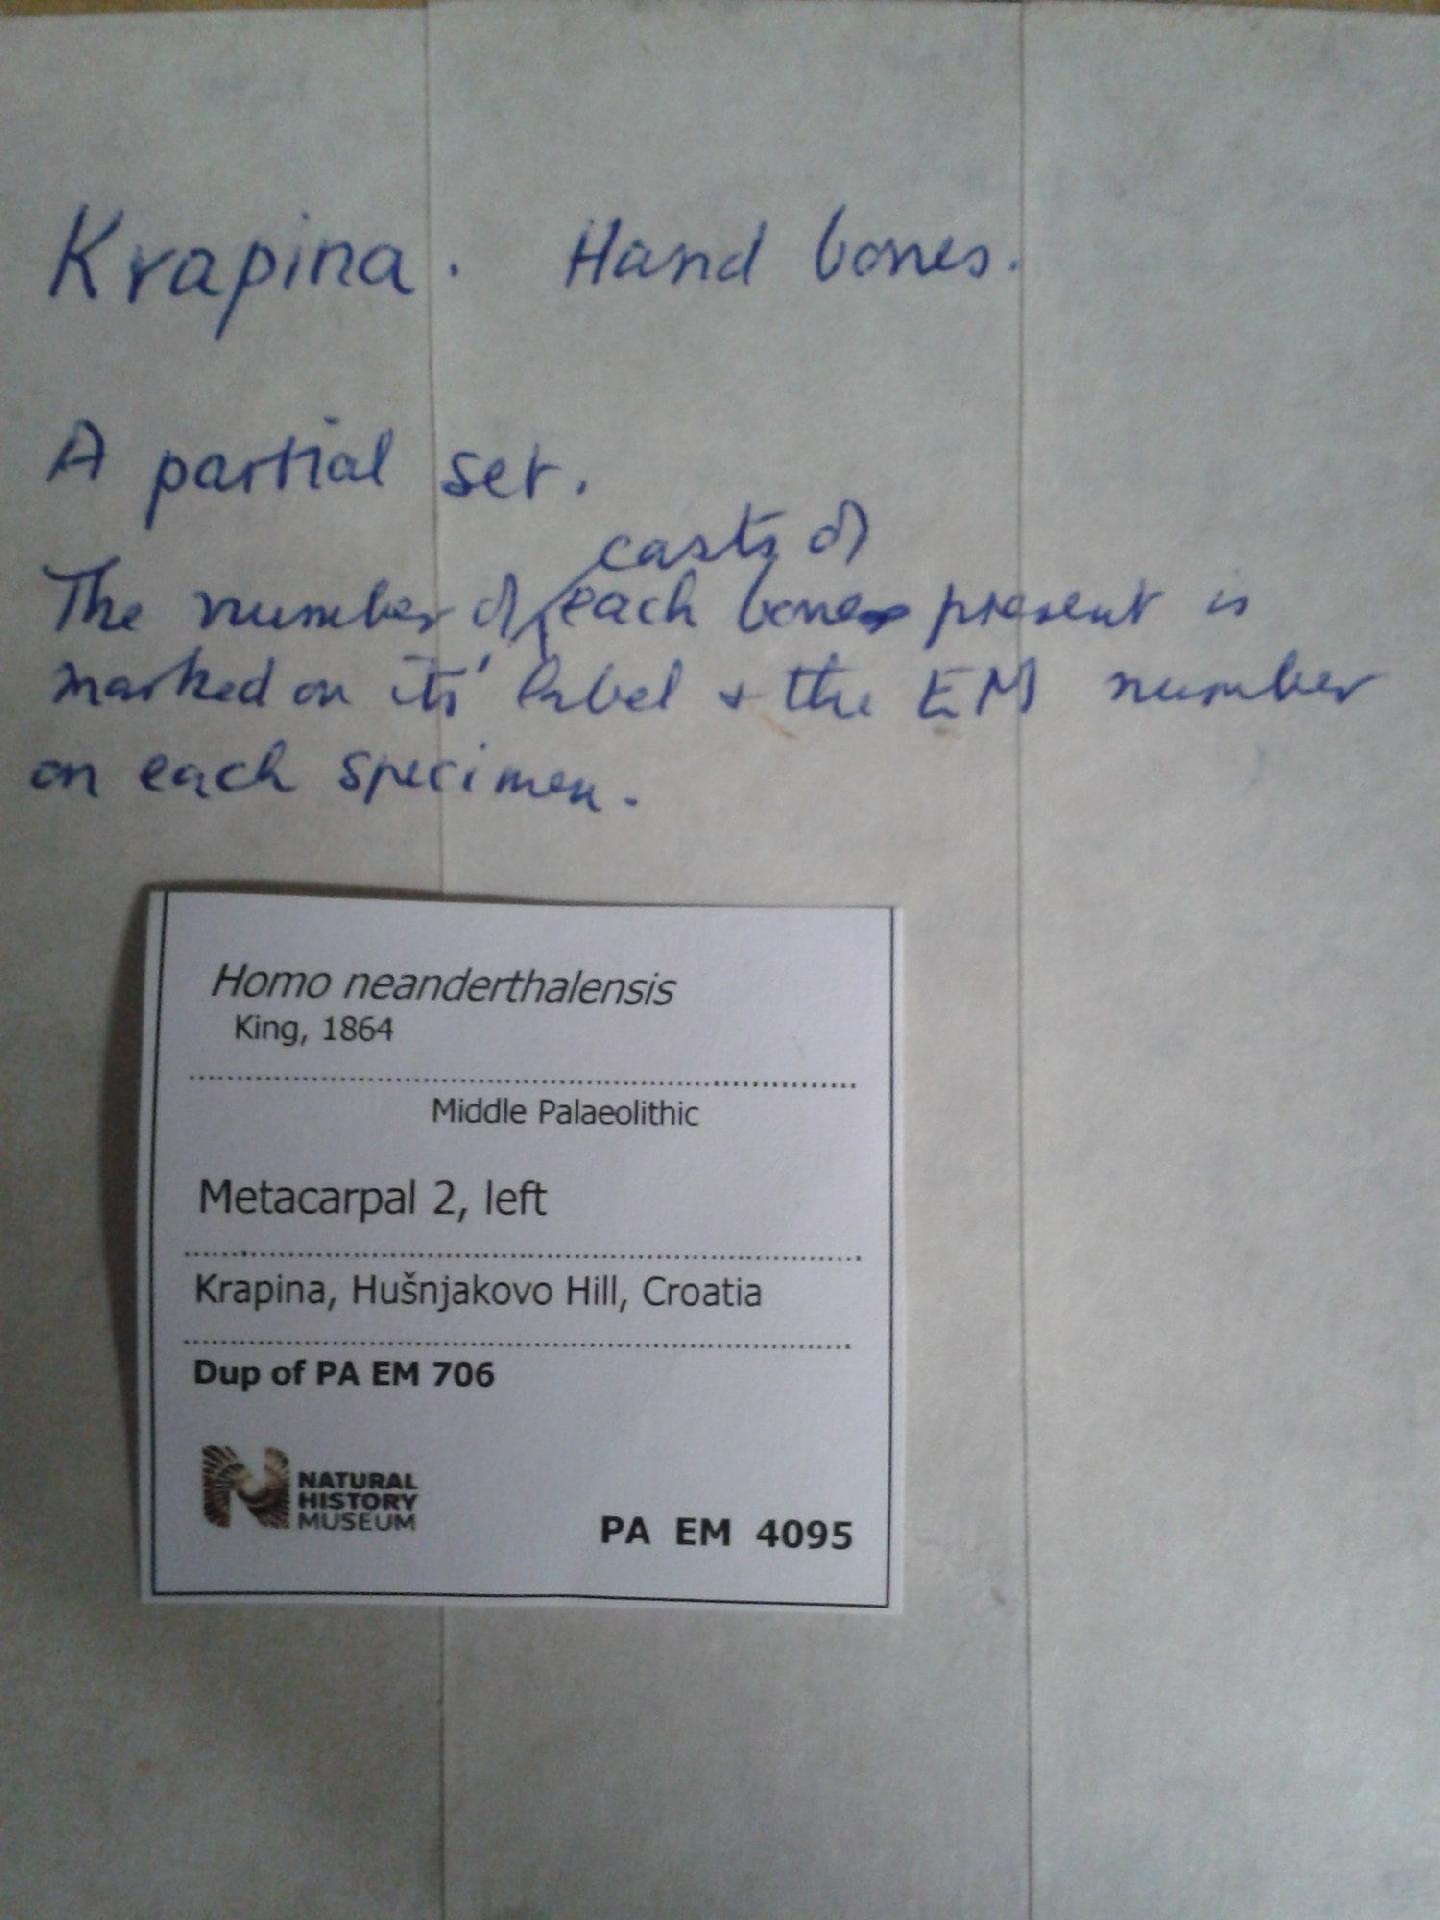 Krapina. Hand bones.
A partial set.
casts of
The number of each bone present is
marked on its' label + the EM number
on each specimen.
Homo neanderthalensis
King, 1864
Middle Palaeolithic
Metacarpal 2, left
Krapina, Hušnjakovo Hill, Croatia
Dup of PA EM 706
NATURAL
HISTORY
MUSEUM
PA EM 4095